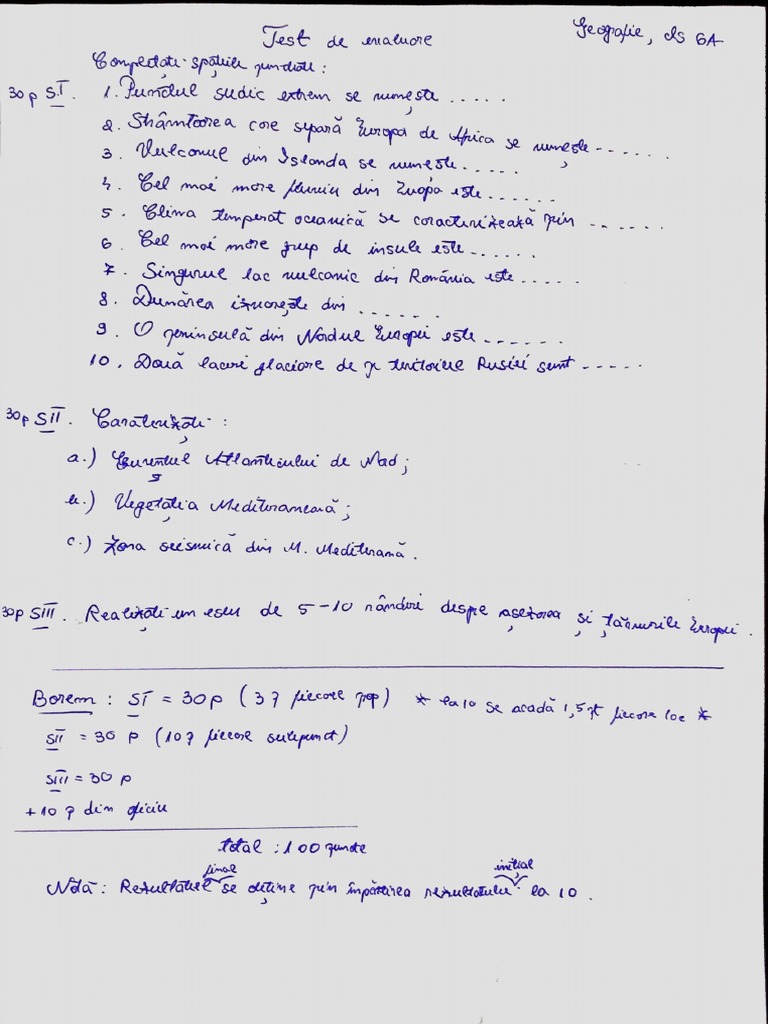 Geografie, cls 6A
Test de evaluare
Completați spațiile punctate:
30p SI. 1. Punctul sudic extrem se numește .....
2. Strâmtoarea care separă Europa de Africa se numește ......
3. Vulcanul din Islanda se numește.....
4. Cel mai mare fluviu din Europa este......
5. Clima temperat oceanică se caracterizează prin ......
6. Cel mai mare grup de insule este......
7. Singurul lac vulcanic din România este.....
8. Dunărea izvorește din ......
9. O peninsulă din Nordul Europei este......
10. Două lacuri glaciare de pe teritoriul Rusiei sunt .....
30p SII. Caracterizați:
a.) Curentul Atlanticului de Nord;
b.) Vegetația Mediteraneană;
c.) Zona seismică din M. Mediterană.
30p SIII. Realizați un eseu de 5-10 rânduri despre așezarea și țărmurile Europei.
Barem: SI = 30p (3p fiecare prop) * la 10 se acadă 1,5p fiecare loc *
SII = 30 p (10p fiecare subpunct)
SIII = 30 p
+10 p din oficiu
total : 100 puncte
final initial
Notă: Rezultatul se obține prin împărțirea rezultatului la 10.